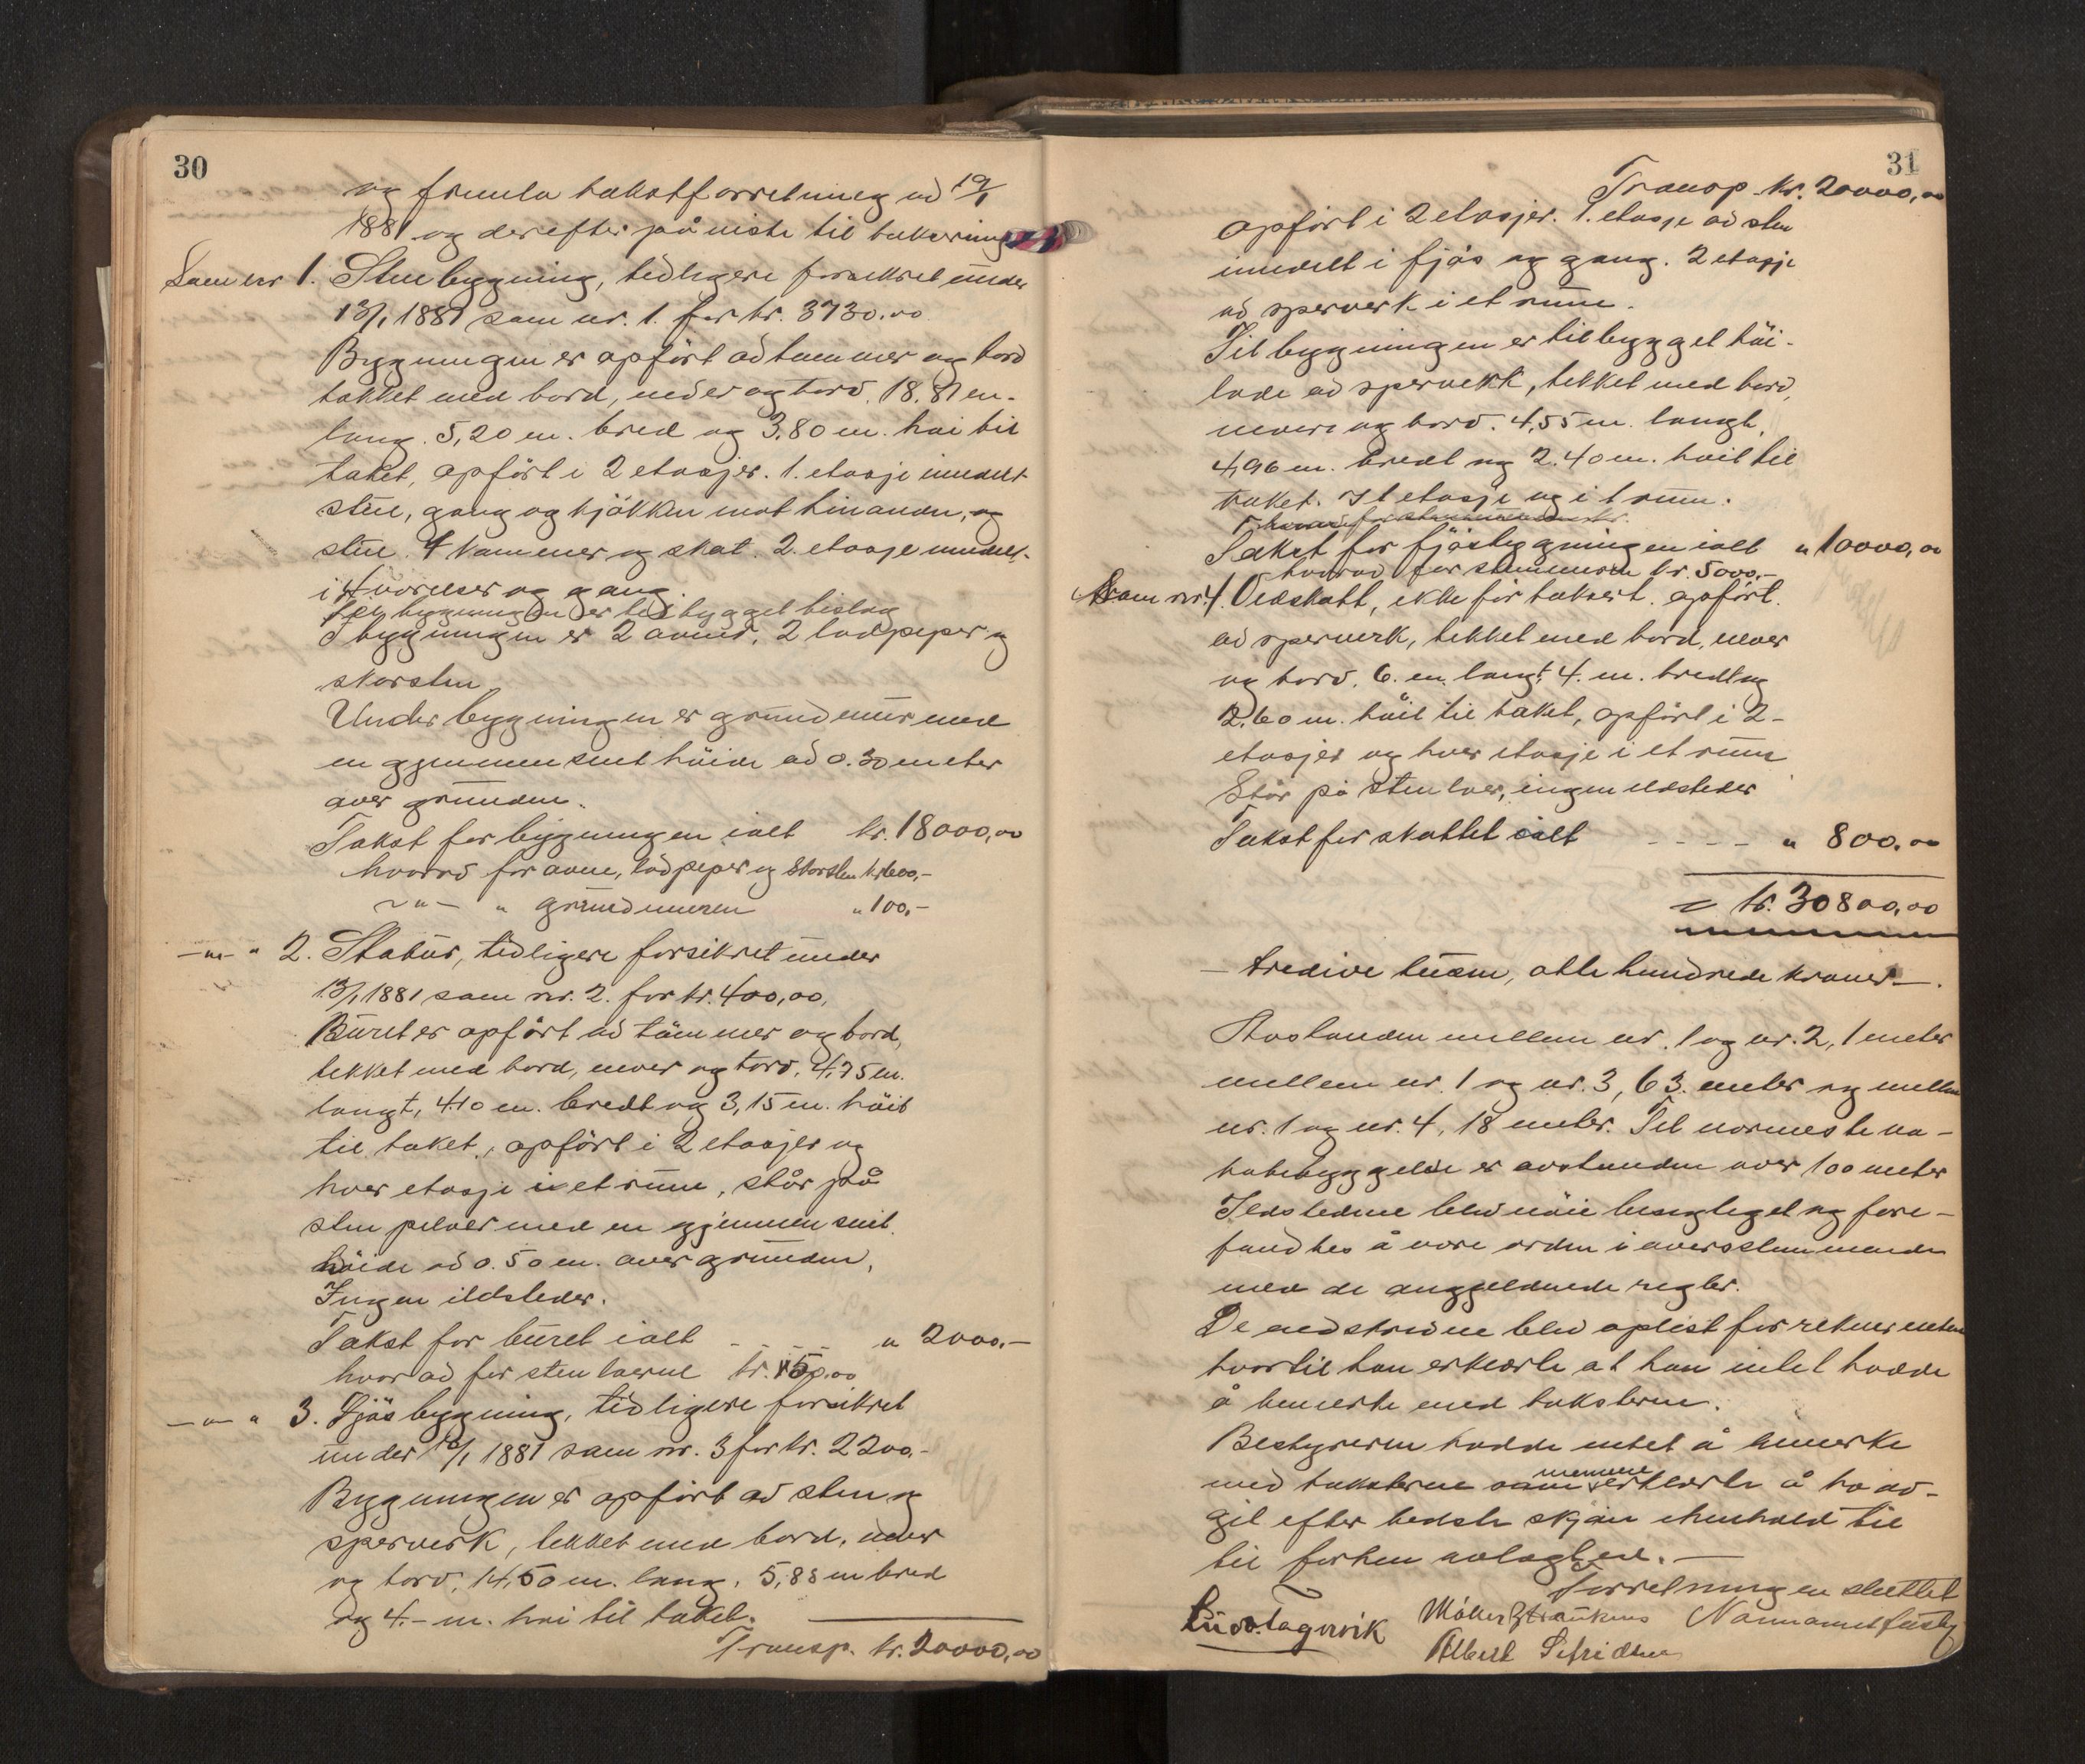 30
og framla takstforretning av 19/1
1881 og derefter påviste til taksering
Som nr 1. Stuebygning, tidligere forsikret under
13/1 1881 som nr. 1. for kr. 3730.00
Bygningen er opført av tømmer og bord
tekket med bord, never og torv. 18.81 m.
lang. 5,20 m. bred og 3,80 m. høi til
taket, opført i 2 etasjer. 1. etasje innedelt
stue, gang og kjøkken mot hinanden, og
stue. 4 kammer og skot. 2. etasje innedelt
i 4 værelser og gang.
Til bygningen er tilbygget bislag
I bygningen er 2 ovner, 2 lodpeper og
skorsten
Under bygningen er grundmur med
en gjennemsnit høide av 0.30 meter
over grunden.
Takst for bygningen ialt kr. 18000,00
hvorav for ovne, lodpeper og skorsten kr 600,-
-"- " grundmuren " 100,-
-"- " 2. Stabur, tidligere forsikret under
13/1 1881 som nr. 2. for kr. 400,00,
Buret er opført av tømmer og bord,
tekket med bord, never og torv, 4,75 m.
langt, 4.10 m. bredt og 3,15 m. høit
til taket, opført i 2 etasjer og
hver etasje i et rum, står på
sten pilaer med en gjennemsnit
høide av 0.50 m. over grunden,
Ingen ildsteder.
Takst for buret ialt - - - " 2000.-
hvorav for stenloerne kr. 150,00
-"- " 3. Fjøsbygning, tidligere forsikret
under 13/1 1881 som nr. 3 for kr. 2200,-
Bygningen er opført av sten og
sperverk, tekket med bord, never
og torv, 14,50 m. lang, 5,88 m bred
og 4.- m. høi til taket.
Transp. kr. 20000,00
31
Transp. kr. 20000,00
opført i 2 etasjer. 1. etasje av sten
innedelt i fjøs og gang. 2 etasje
av sperverk i et rum.
Til bygningen er tilbygget høi-
lade av sperverk, tekket med bord,
never og torv. 4,55 m. langt,
4,96 m. bredt og 2.40 m. høit til
taket. I 1 etasje og i 1 rum.
Takst for fjøsbygningen ialt " 10000,00
hvorav for stenmuren kr. 5000,-
Som nr. 4. Vedskott, ikke før taksert. opført
av sperverk, tekket med bord, never
og torv, 6. m. langt, 4. m. bredt og
2.60 m. høit til taket, opført i 2-
etasjer og hver etasje i et rum
Står på stenloer, ingen ildsteder
Takst for skottet ialt - - - - " 800.00
= kr. 30800,00
- tredive tusen, otte hundrede kroner -.
Avstanden mellem nr. 1 og nr. 2, 1 meter
mellem nr. 1 og nr. 3, 63. meter og mellem
nr. 1 og nr. 4, 18 meter. Til nærmeste na-
bobebyggelse er avstanden over 100 meter
Ildstedene blev nøie besigtiget og fore-
fandtes å være orden i overstemmende
med de anggjeldende regler.
De nedskrevne blev oplest for rekvirenten
hvortil han erklærte at han intet hadde
å bemerke med taksterne.
Bestyreren hadde intet å bemerke
med taksterne som mennene erklærte å ha av-
git efter bedste skjøn i henhold til
til forhen avlagt ed. -
Forretningen sluttet
Ludv. Lagervik
Albert Sifridsen